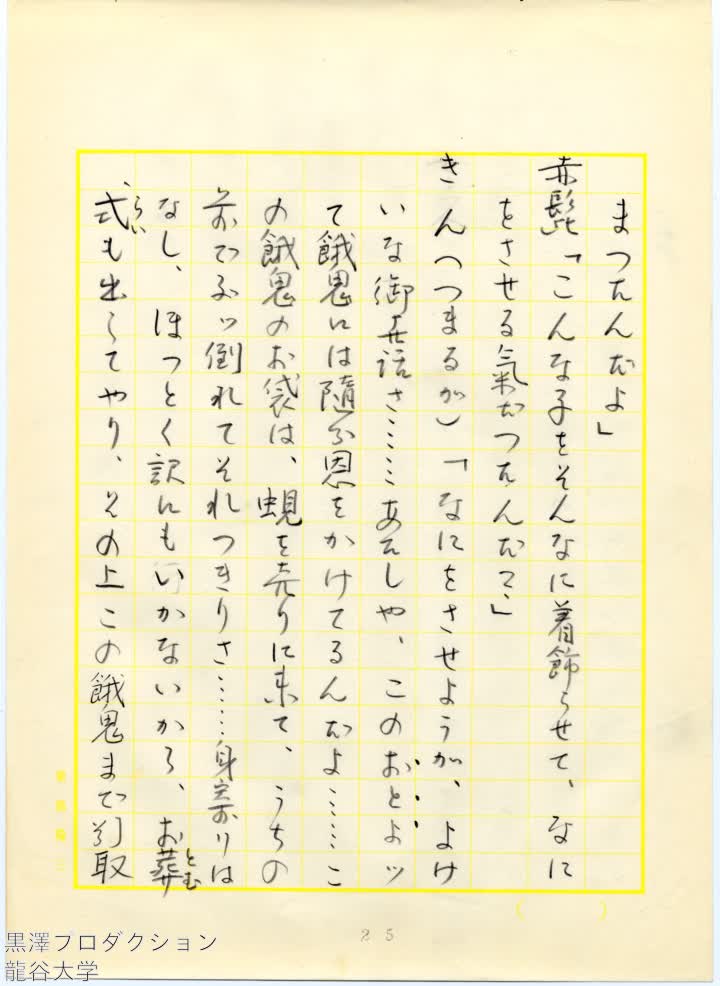 まつたんだよ」
赤髭「こんな子をそんなに着飾らせて、なに
をさせる氣だつたんだ?」
きん(つまるが)「なにをさせようが、よけ
いな御世話さ……あたしや、このおとよッ
て餓鬼には随分恩をかけてるんだよ……こ
の餓鬼のお袋は、蜆を売りに来て、うちの
前でぶッ倒れてそれつきりさ……身寄りは
なし、ほつとく訳にもいかないから、お葬
とむ
らい
式も出してやり、その上この餓鬼まで引取
25
黒澤プロダクション
龍谷大学